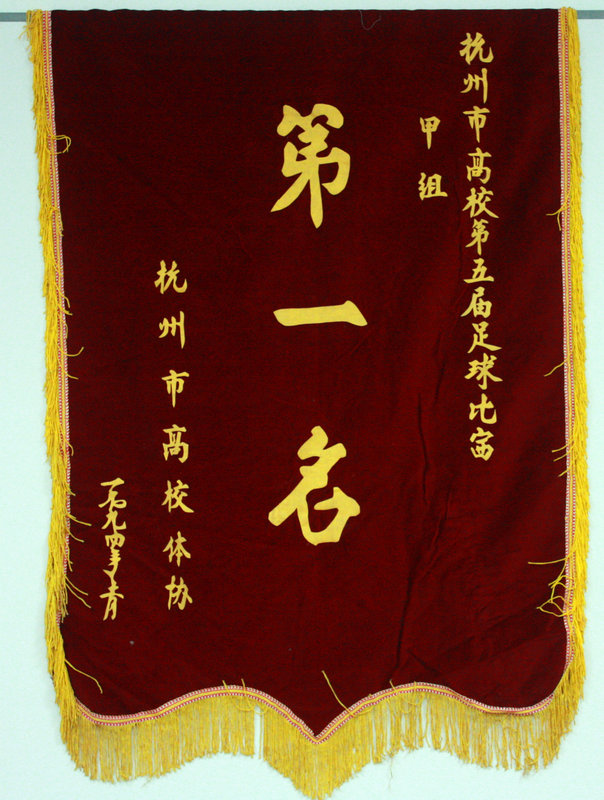 杭州市高校第五届足球比赛
甲组
第一名
杭州市高校体协
一九九四年